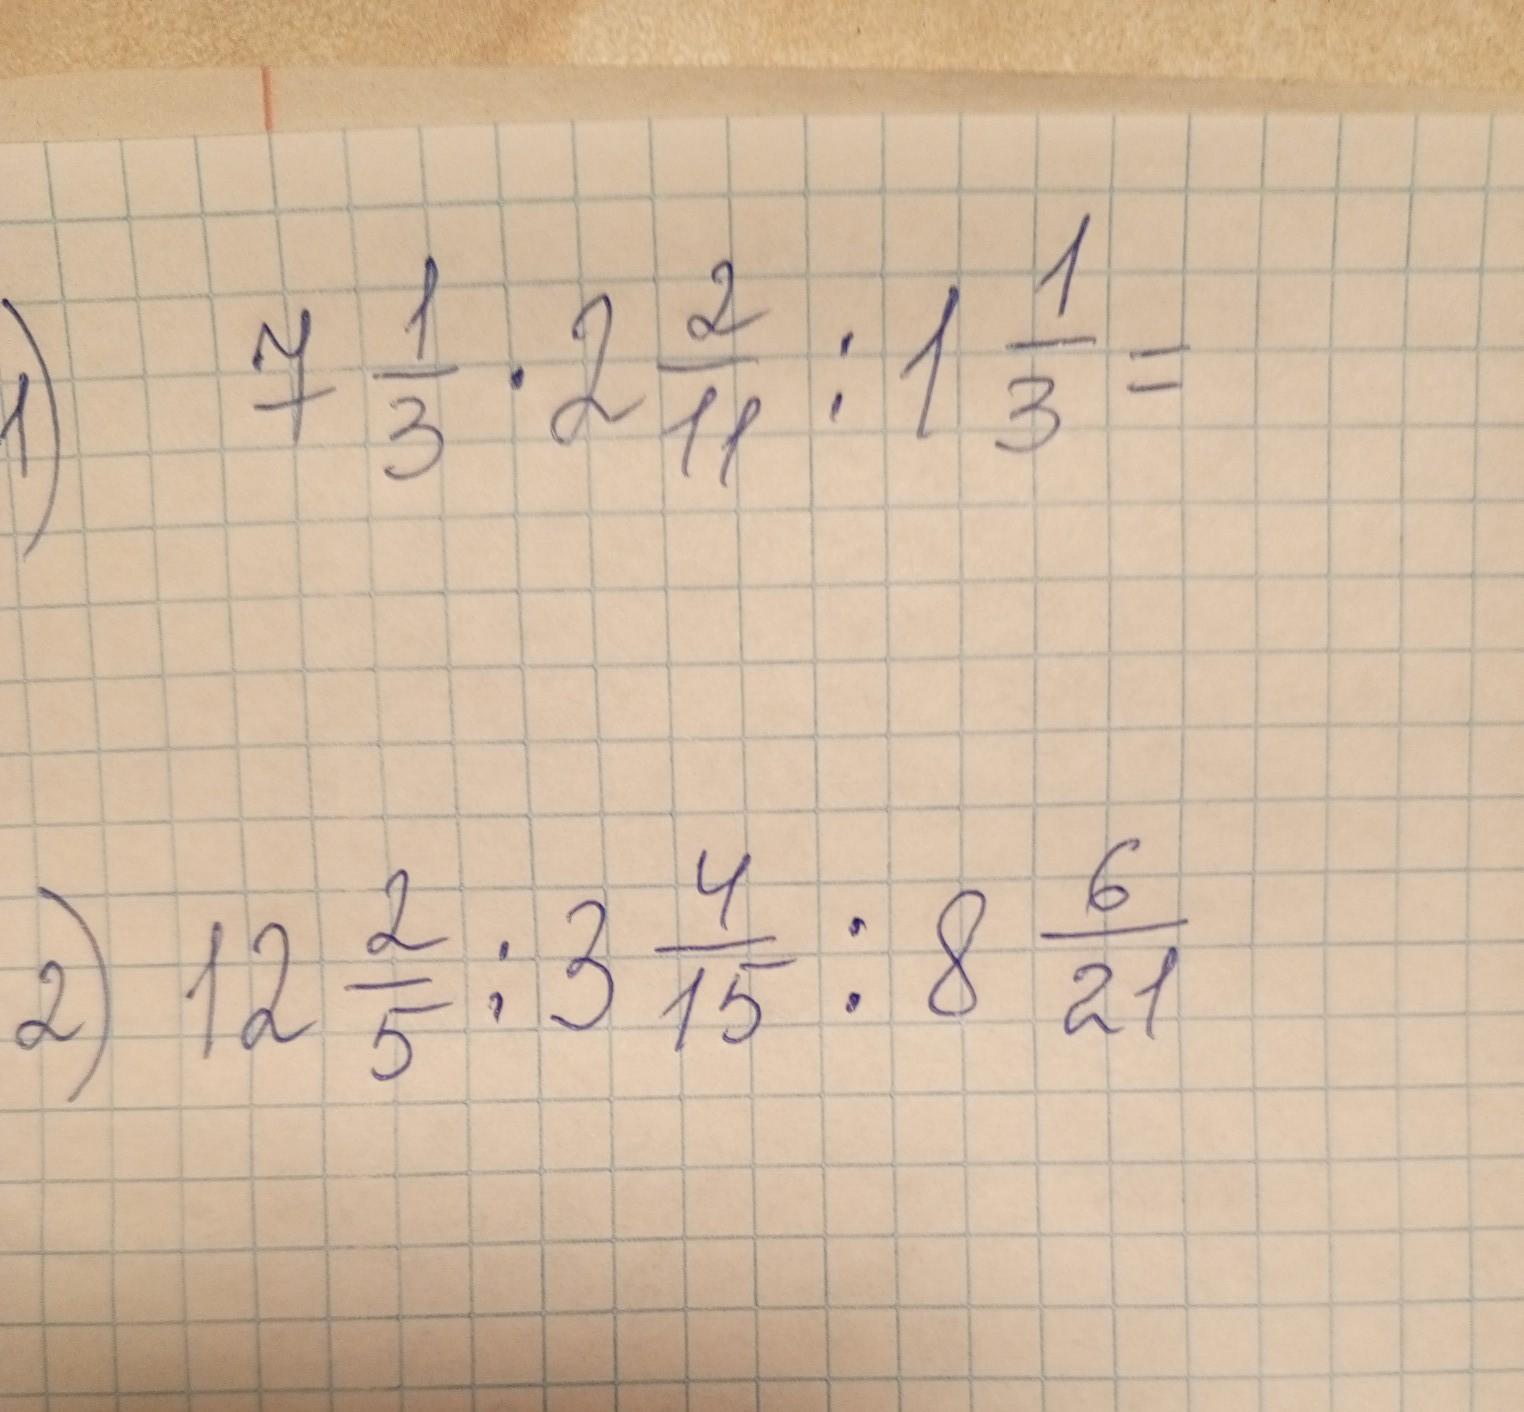 1) 7 1/3 · 2 2/11 : 1 1/3 =
2) 12 2/5 : 3 4/15 : 8 6/21